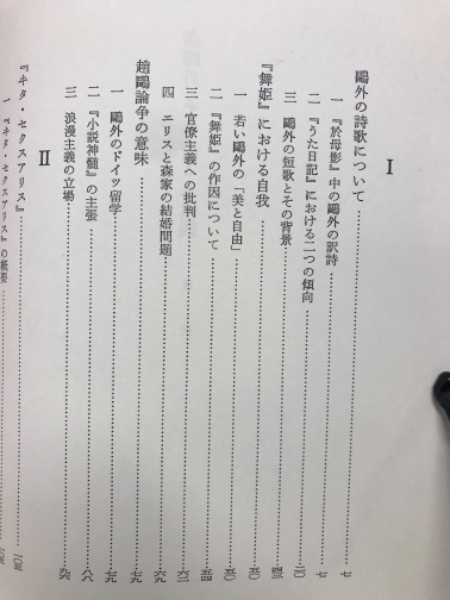 I
鷗外の詩歌について……七
一　『於母影』中の鷗外の訳詩……七
二　『うた日記』における二つの傾向……二〇
三　鷗外の短歌とその背景……四三
『舞姫』における自我……五〇
一　若い鷗外の「美と自由」……五〇
二　『舞姫』の作因について……五四
三　官僚主義への批判……六二
四　エリスと森家の結婚問題……六九
逍鷗論争の意味……七九
一　鷗外のドイツ留学……七九
二　『小説神髄』の主張……八八
三　浪漫主義の立場……九六
II
『ヰタ・セクスアリス』……一〇五
一　『ヰタ・セクスアリス』の概要……一〇五